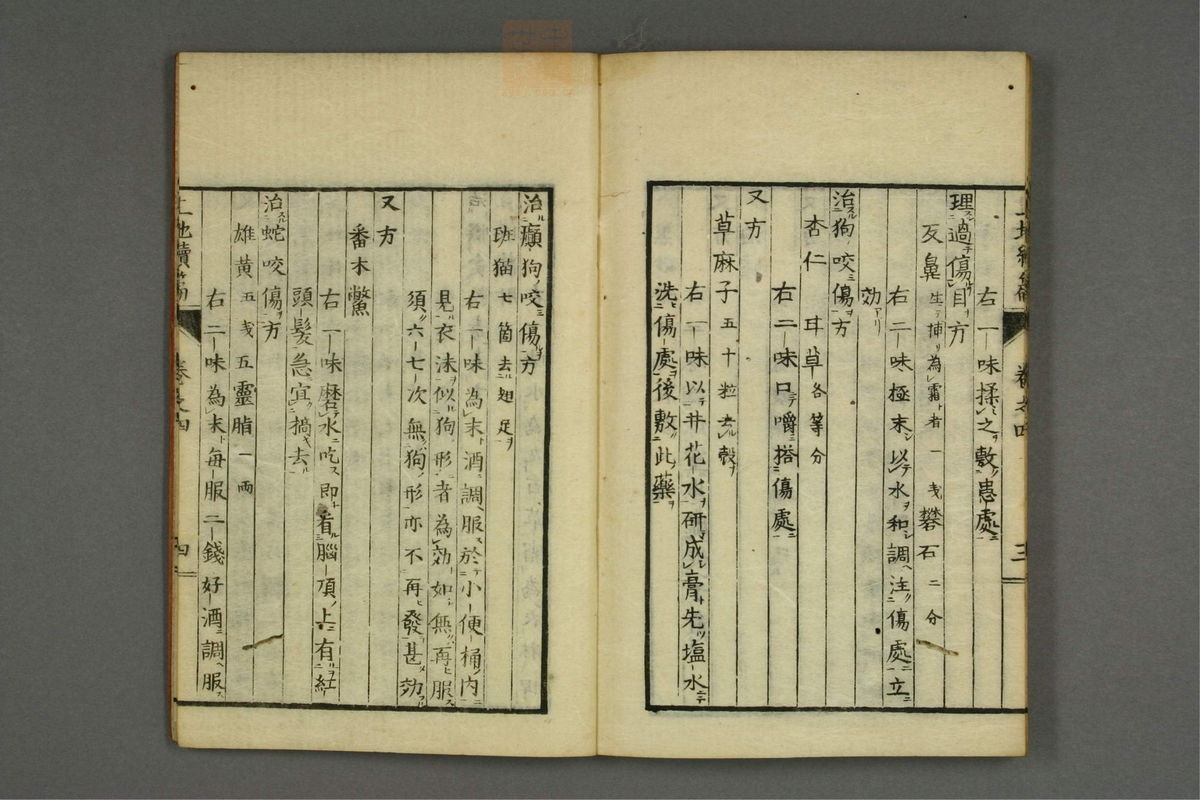 右一味揉之敷患處
理過傷目方
反鼻生テ揷為霜者一戔礬石二分
右二味極末以水和調注傷處立
効アリ
治狗咬傷方
杏仁 耳草各等分
右二味口嚼搭傷處
又方
草麻子五十粒去殼
右一味以井花水研成膏先塩水
洗傷處後敷此藥
卷之四 三
治癲狗咬傷方
斑猫七箇去翅足
右一味為末酒調服於小便桶内
見衣沫似狗形者為効如無再服
須六七次無狗形亦不再發甚効
又方
番木鱉
右一味磨水吃即看腦頂上有紅
頭髮急宜搞去
治蛇咬傷方
雄黄五戔五靈脂一両
右二味為末毎服二錢好酒調服
續篇 卷之四 四